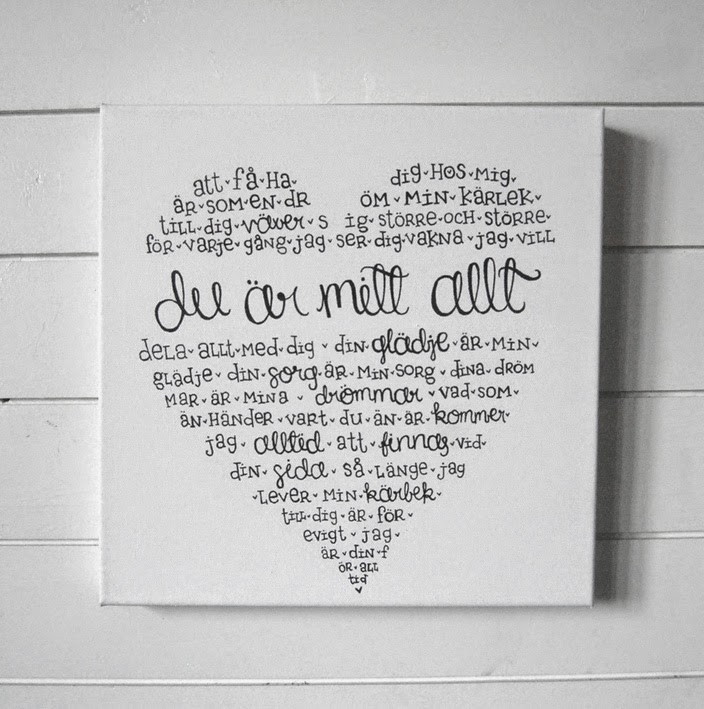 att få ha dig hos mig
är som en dröm min kärlek
till dig växer sig större och större
för varje gång jag ser dig vakna jag vill
du är mitt allt
dela allt med dig din glädje är min
glädje din sorg är min sorg dina dröm
mar är mina drömmar vad som
än händer vart du än är kommer
jag alltid att finnas vid
din sida så länge jag
lever min kärlek
till dig är för
evigt jag
är din f
ör all
tid